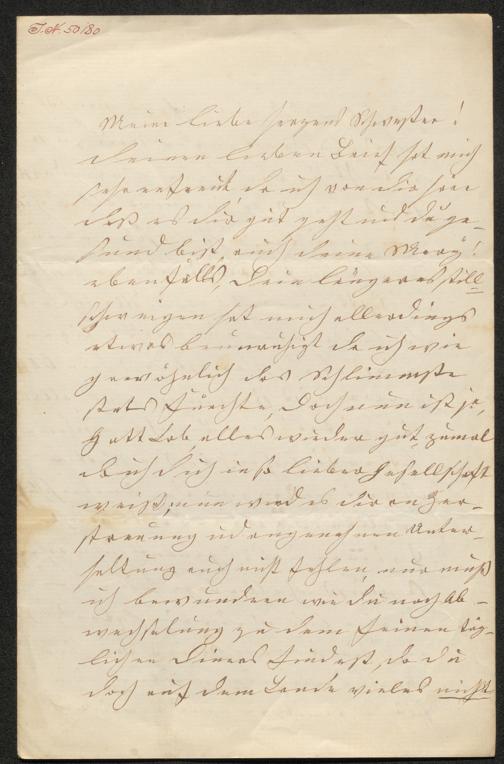 I.N. 50180
Meine liebe herzens Schwester!
deinen lieben Brief hat mich
sehr erfreut da ich von dir höre
daß es dir gut geht und du ge-
sund bist, auch deine Mary!
ebenfalls, Dein längeres still
schweigen hat mich allerdings
etwas beunruhigt da ich wie
gewöhnlich das Schlimmste
stets fürchte, doch nun ist ja,
Gott Lob alles wieder gut, zumal
ich dich in so lieber Gesellschaft
weiß, nun wird es dir an Zer-
streuung und angenehmen Unter-
haltung auch nicht fehlen, nur muß
ich bewundern wie du noch Ab-
wechselung zu dem feinen täg-
lichen Diners findest, da du
doch auf dem Lande vieles nicht